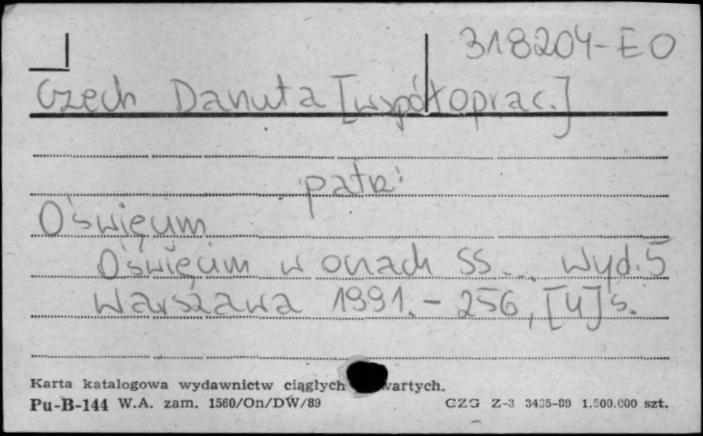 318204-EO
Czech Danuta [współoprac.]
patrz:
Oświęcim
Oświęcim w oczach SS... Wyd. 5
Warszawa 1991. - 256, [4] s.
Karta katalogowa wydawnictw ciągłych
Pu-B-144 W.A. zam. 1560/On/DW/89 CZG Z-3 3435-89 1.500.000 szt.